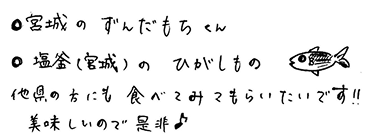 ●宮城の ずんだもちくん
●塩釜(宮城)の ひがしもの
他県の方にも 食べてみてもらいたいです!!
美味しいので是非♪